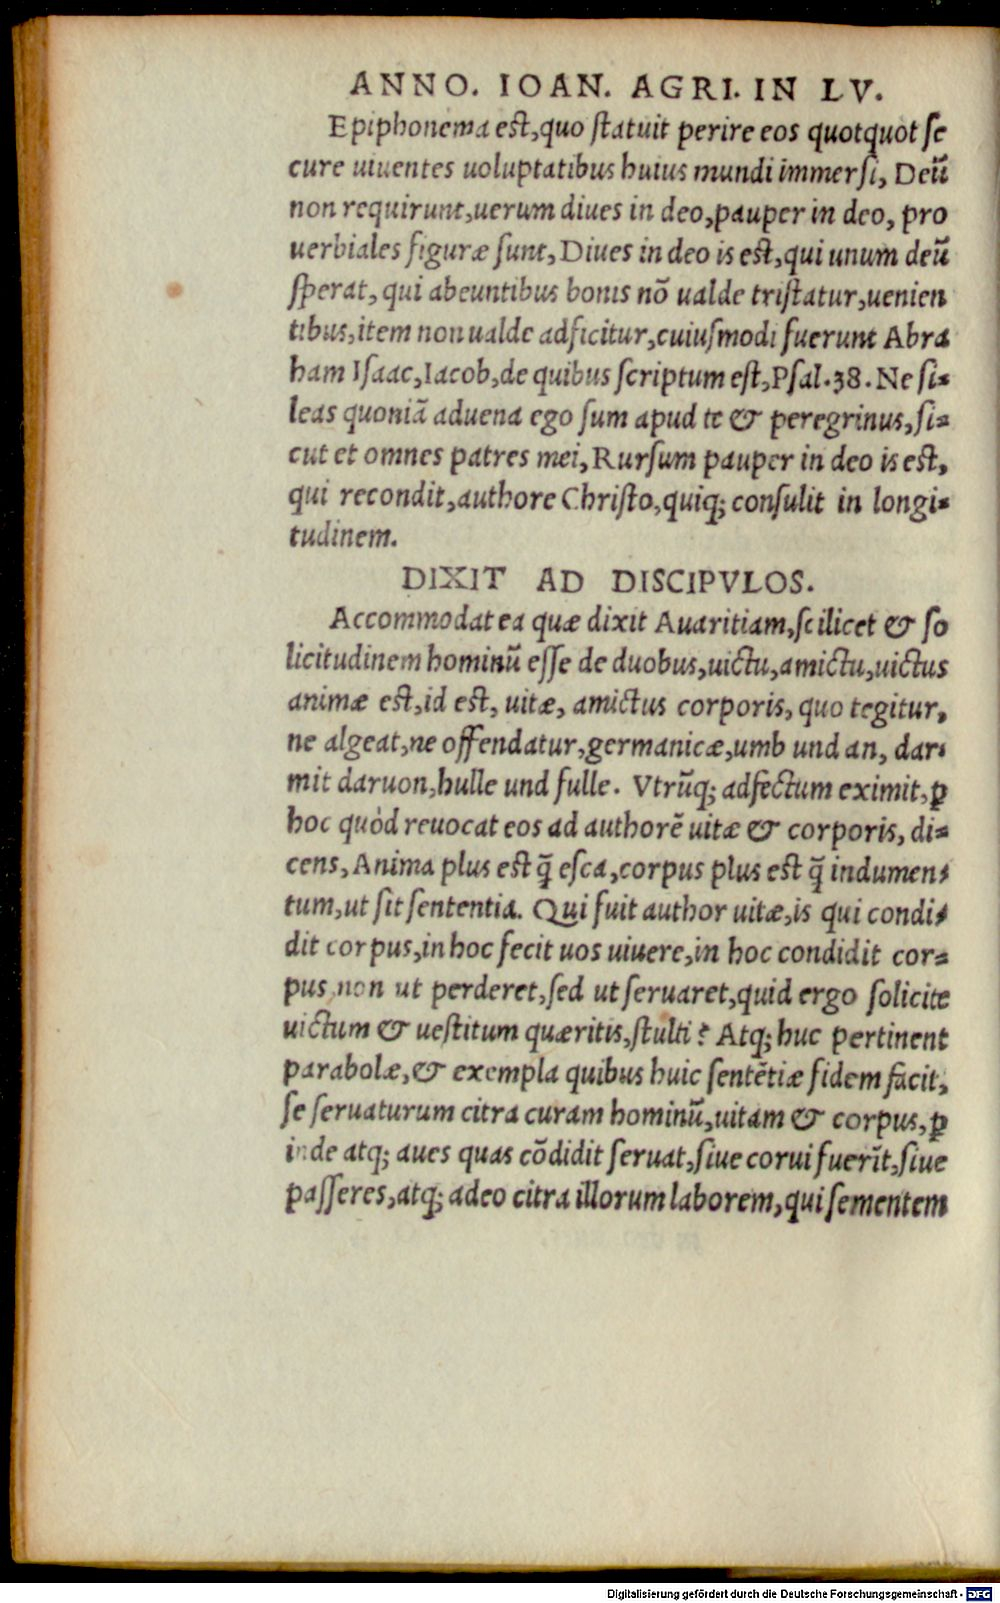 ANNO. IOAN. AGRI. IN LV.
Epiphonema est, quo statuit perire eos quotquot se
cure uiuentes uoluptatibus huius mundi immersi, Deū
non requirunt, uerum diues in deo, pauper in deo, pro
uerbiales figuræ sunt, Diues in deo is est, qui unum deū
sperat, qui abeuntibus bonis nō ualde tristatur, uenien
tibus, item non ualde adficitur, cuiusmodi fuerunt Abra
ham Isaac, Iacob, de quibus scriptum est, Psal. 38. Ne si-
leas quoniā aduena ego sum apud te & peregrinus, si-
cut et omnes patres mei, Rursum pauper in deo is est,
qui recondit, authore Christo, quiq; consulit in longi-
tudinem.
DIXIT AD DISCIPVLOS.
Accommodat ea quæ dixit Auaritiam, scilicet & so
licitudinem hominū esse de duobus, uictu, amictu, uictus
animæ est, id est, uitæ, amictus corporis, quo tegitur,
ne algeat, ne offendatur, germanicæ, umb und an, dar-
mit daruon, hulle und fulle. Vtrūq; adfectum eximit, ꝑ
hoc quòd reuocat eos ad authorē uitæ & corporis, di-
cens, Anima plus est q̃ esca, corpus plus est q̃ indumen-
tum, ut sit sententia. Qui fuit author uitæ, is qui condi-
dit corpus, in hoc fecit uos uiuere, in hoc condidit cor-
pus, non ut perderet, sed ut seruaret, quid ergo solicite
uictum & uestitum quæritis, stulti? Atq; huc pertinent
parabolæ, & exempla quibus huic sentētiæ fidem facit,
se seruaturum citra curam hominū, uitam & corpus, ꝑ
inde atq; aues quas cōdidit seruat, siue corui fuerīt, siue
passeres, atq; adeo citra illorum laborem, qui sementem
Digitalisierung gefördert durch die Deutsche Forschungsgemeinschaft - DFG